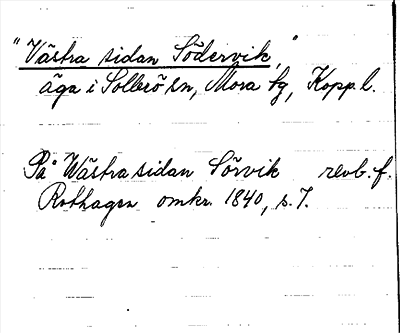 "Västra sidan Södervik,"
äga i Sollerö sn, Mora tg, Kopp. l.
På Wästra sidan Sörvik revb. f.
Rothagen omkr. 1840, s. 7.